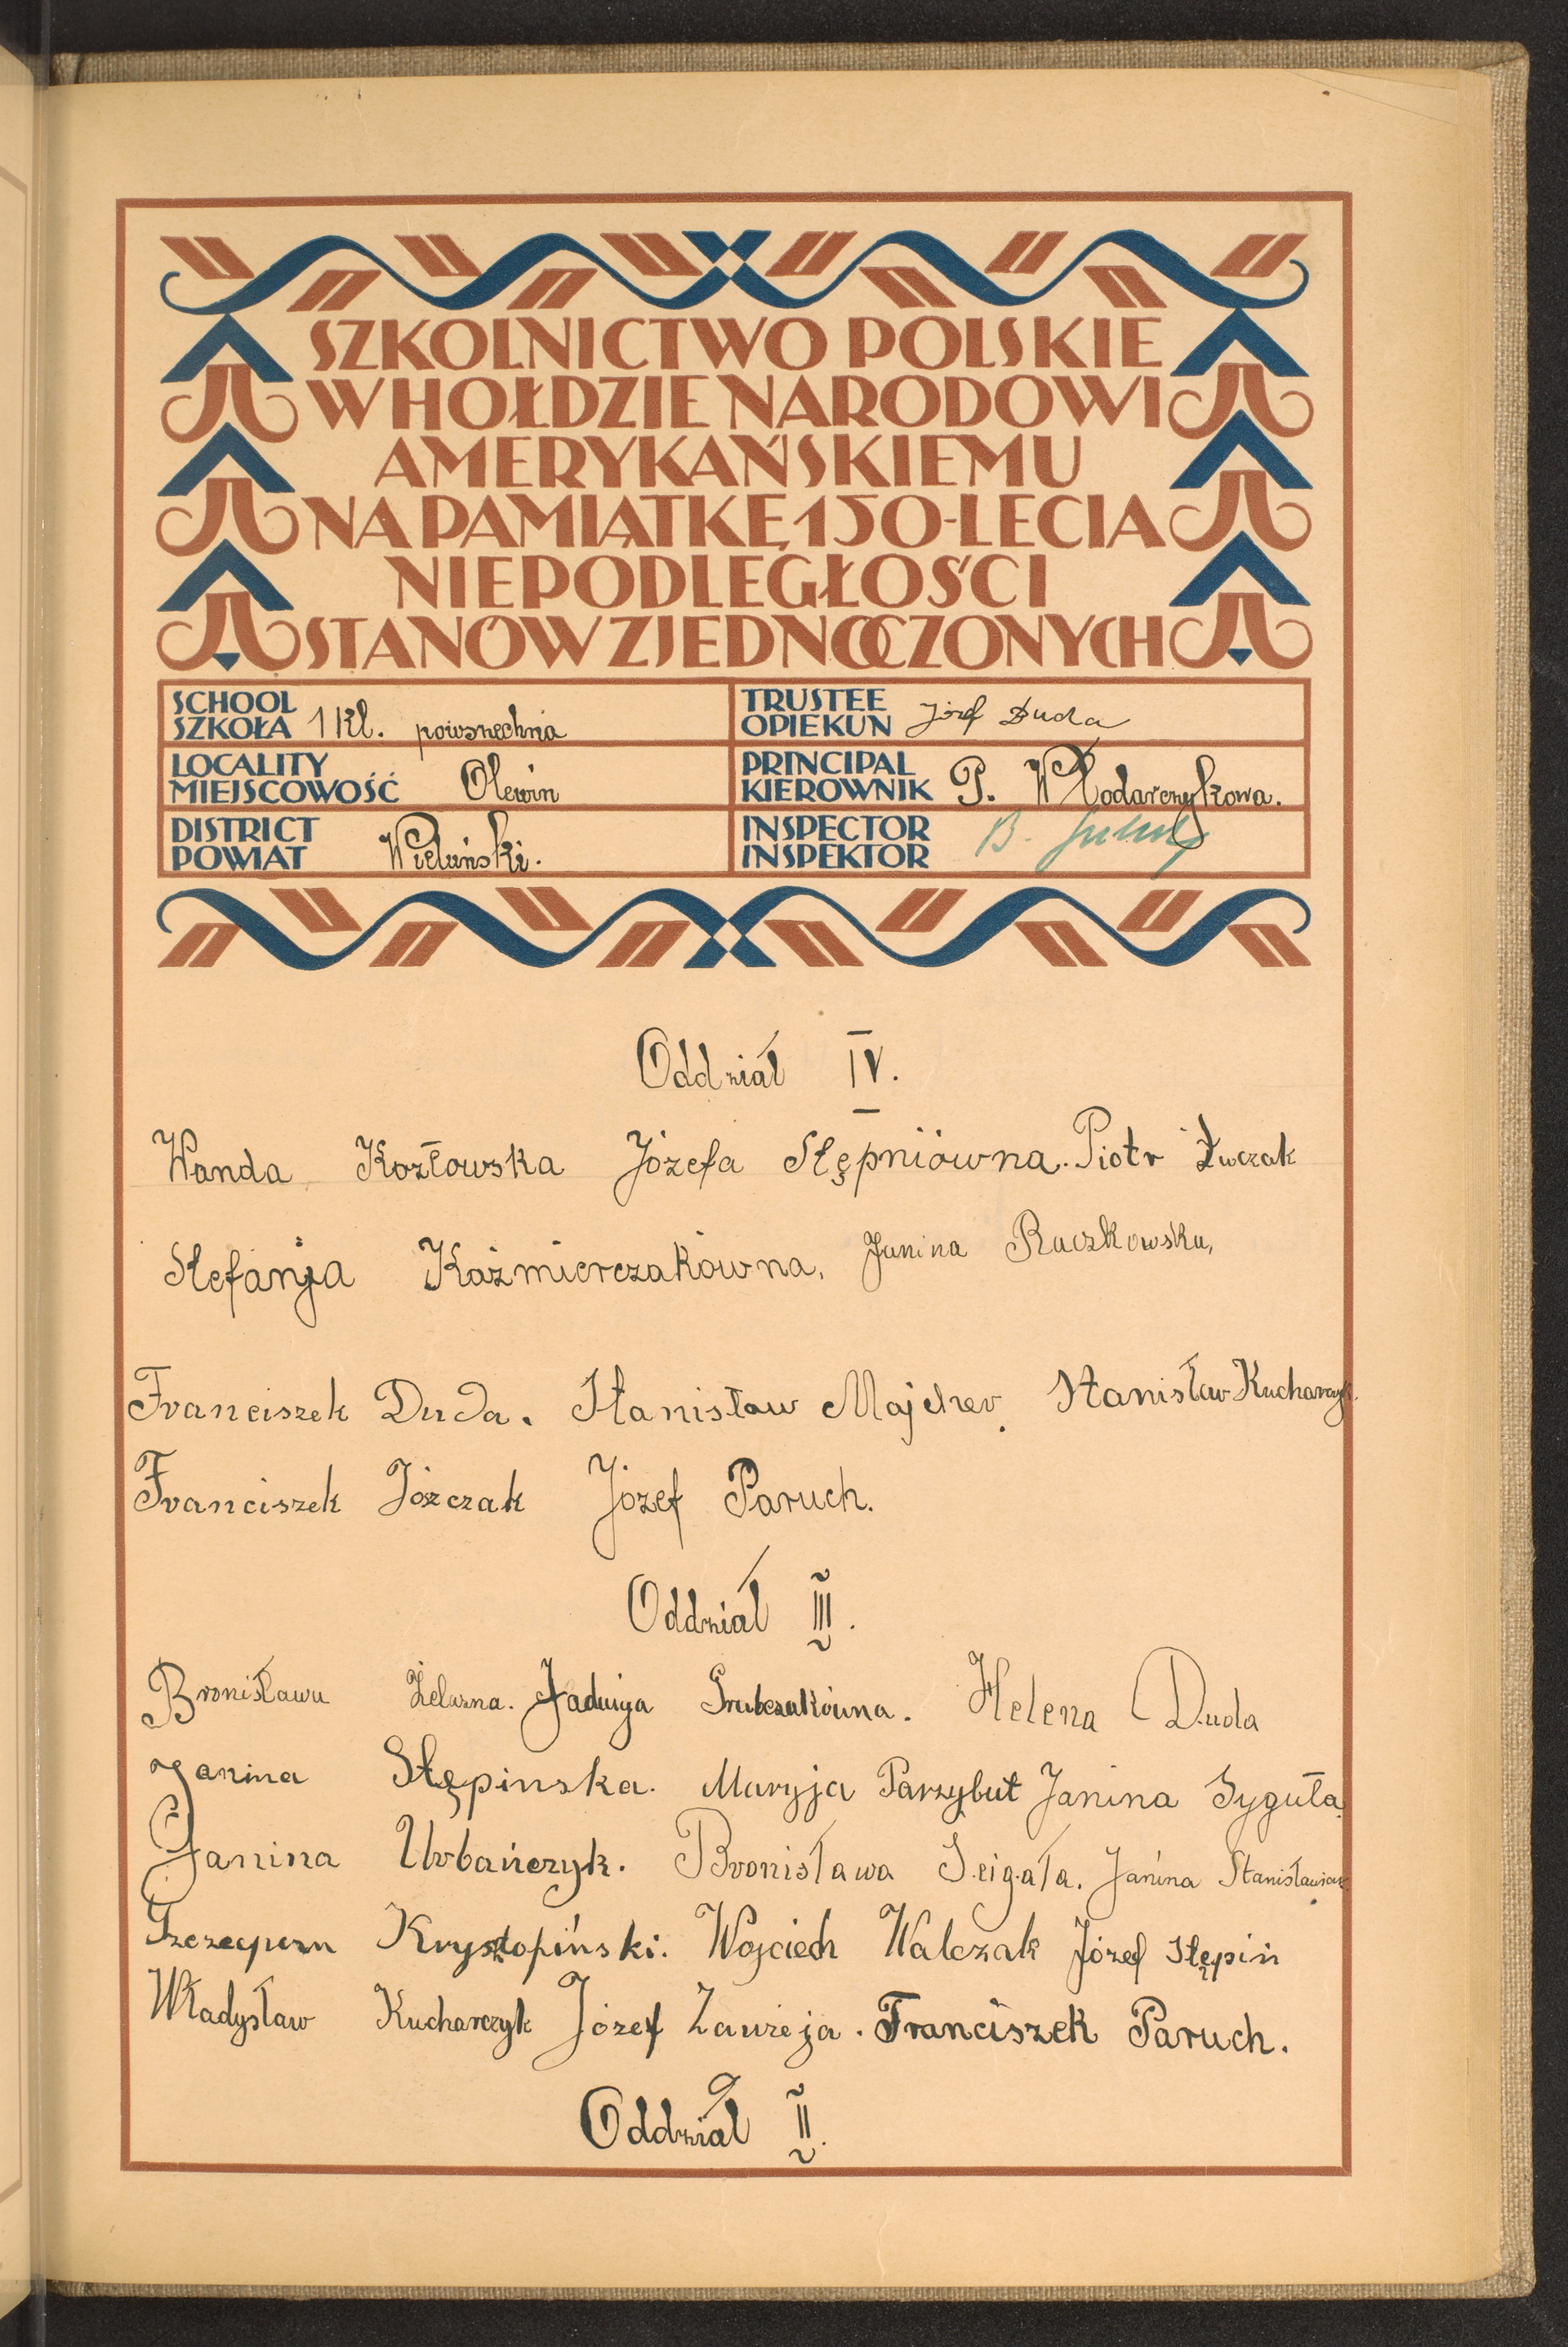 SZKOLNICTWO POLSKIE
W HOŁDZIE NARODOWI
AMERYKAŃSKIEMU
NA PAMIĄTKĘ 150-LECIA
NIEPODLEGŁOŚCI
STANÓW ZJEDNOCZONYCH
SCHOOL
SZKOŁA 1 kl. powszechna
TRUSTEE
OPIEKUN Józef Duda
LOCALITY
MIEJSCOWOŚĆ Olewin
PRINCIPAL
KIEROWNIK P. Włodarczykowa.
DISTRICT
POWIAT Wieluński.
INSPECTOR
INSPEKTOR B.
Oddział IV.
Wanda Kozłowska Józefa Stępniówna. Piotr
Stefanja Kaźmierczakówna, Janina Raczkowska,
Franciszek Duda. Stanisław Majcher. Stanisław Kucharczyk.
Franciszek Józczak Józef Paruch.
Oddział III.
Bronisława Żelazna. Jadwiga Grubczakówna. Helena Duda
Janina Stępinska. Maryja Parzybut Janina Syguła
Janina Urbańczyk. Bronisława Janina Stanisławiak
Krysztopiński. Wojciech Walczak Józef Stępiń
Władysław Kucharczyk Józef Zawieja. Franciszek Paruch.
Oddział II.